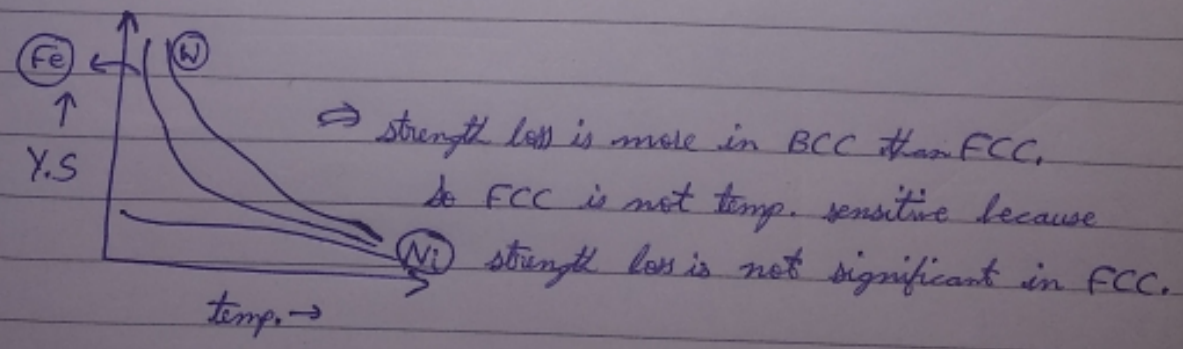 Fe
W
↑
Y.S
⇒ strength loss is more in BCC than FCC.
So FCC is not temp. sensitive because
Ni
strength loss is not significant in FCC.
temp. →